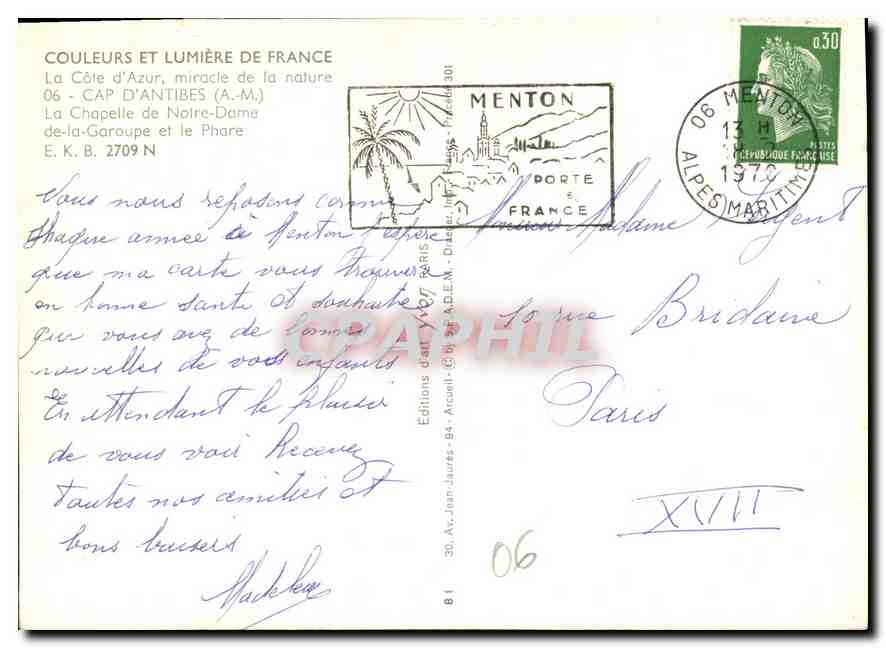 COULEURS ET LUMIÈRE DE FRANCE
La Côte d'Azur, miracle de la nature
06 - CAP D'ANTIBES (A.-M.)
La Chapelle de Notre-Dame
de-la-Garoupe et le Phare
E. K. B. 2709 N
MENTON
PORTE
FRANCE
06 MENTON
13 H
1970
ALPES MARITIMES
0,30
POSTES
REPUBLIQUE FRANÇAISE
Vous nous reposons comme
chaque année à Menton espère
que ma carte vous trouvera
en bonne santé et souhaite
que vous avez de bonnes
nouvelles de vos enfants
En attendant le plaisir
de vous voir Recevez
toutes nos amitiés et
bons baisers
Madeleine
Éditions d'art yvon PARIS
30, Av. Jean-Jaurès - 94 - Arcueil - © by S.P.A.D.E.M. - Draeger, Imp. France - Procédé 301
8 1
Monsieur Madame
10 rue Bridaine
Paris
XVII
06
CPAPHIL